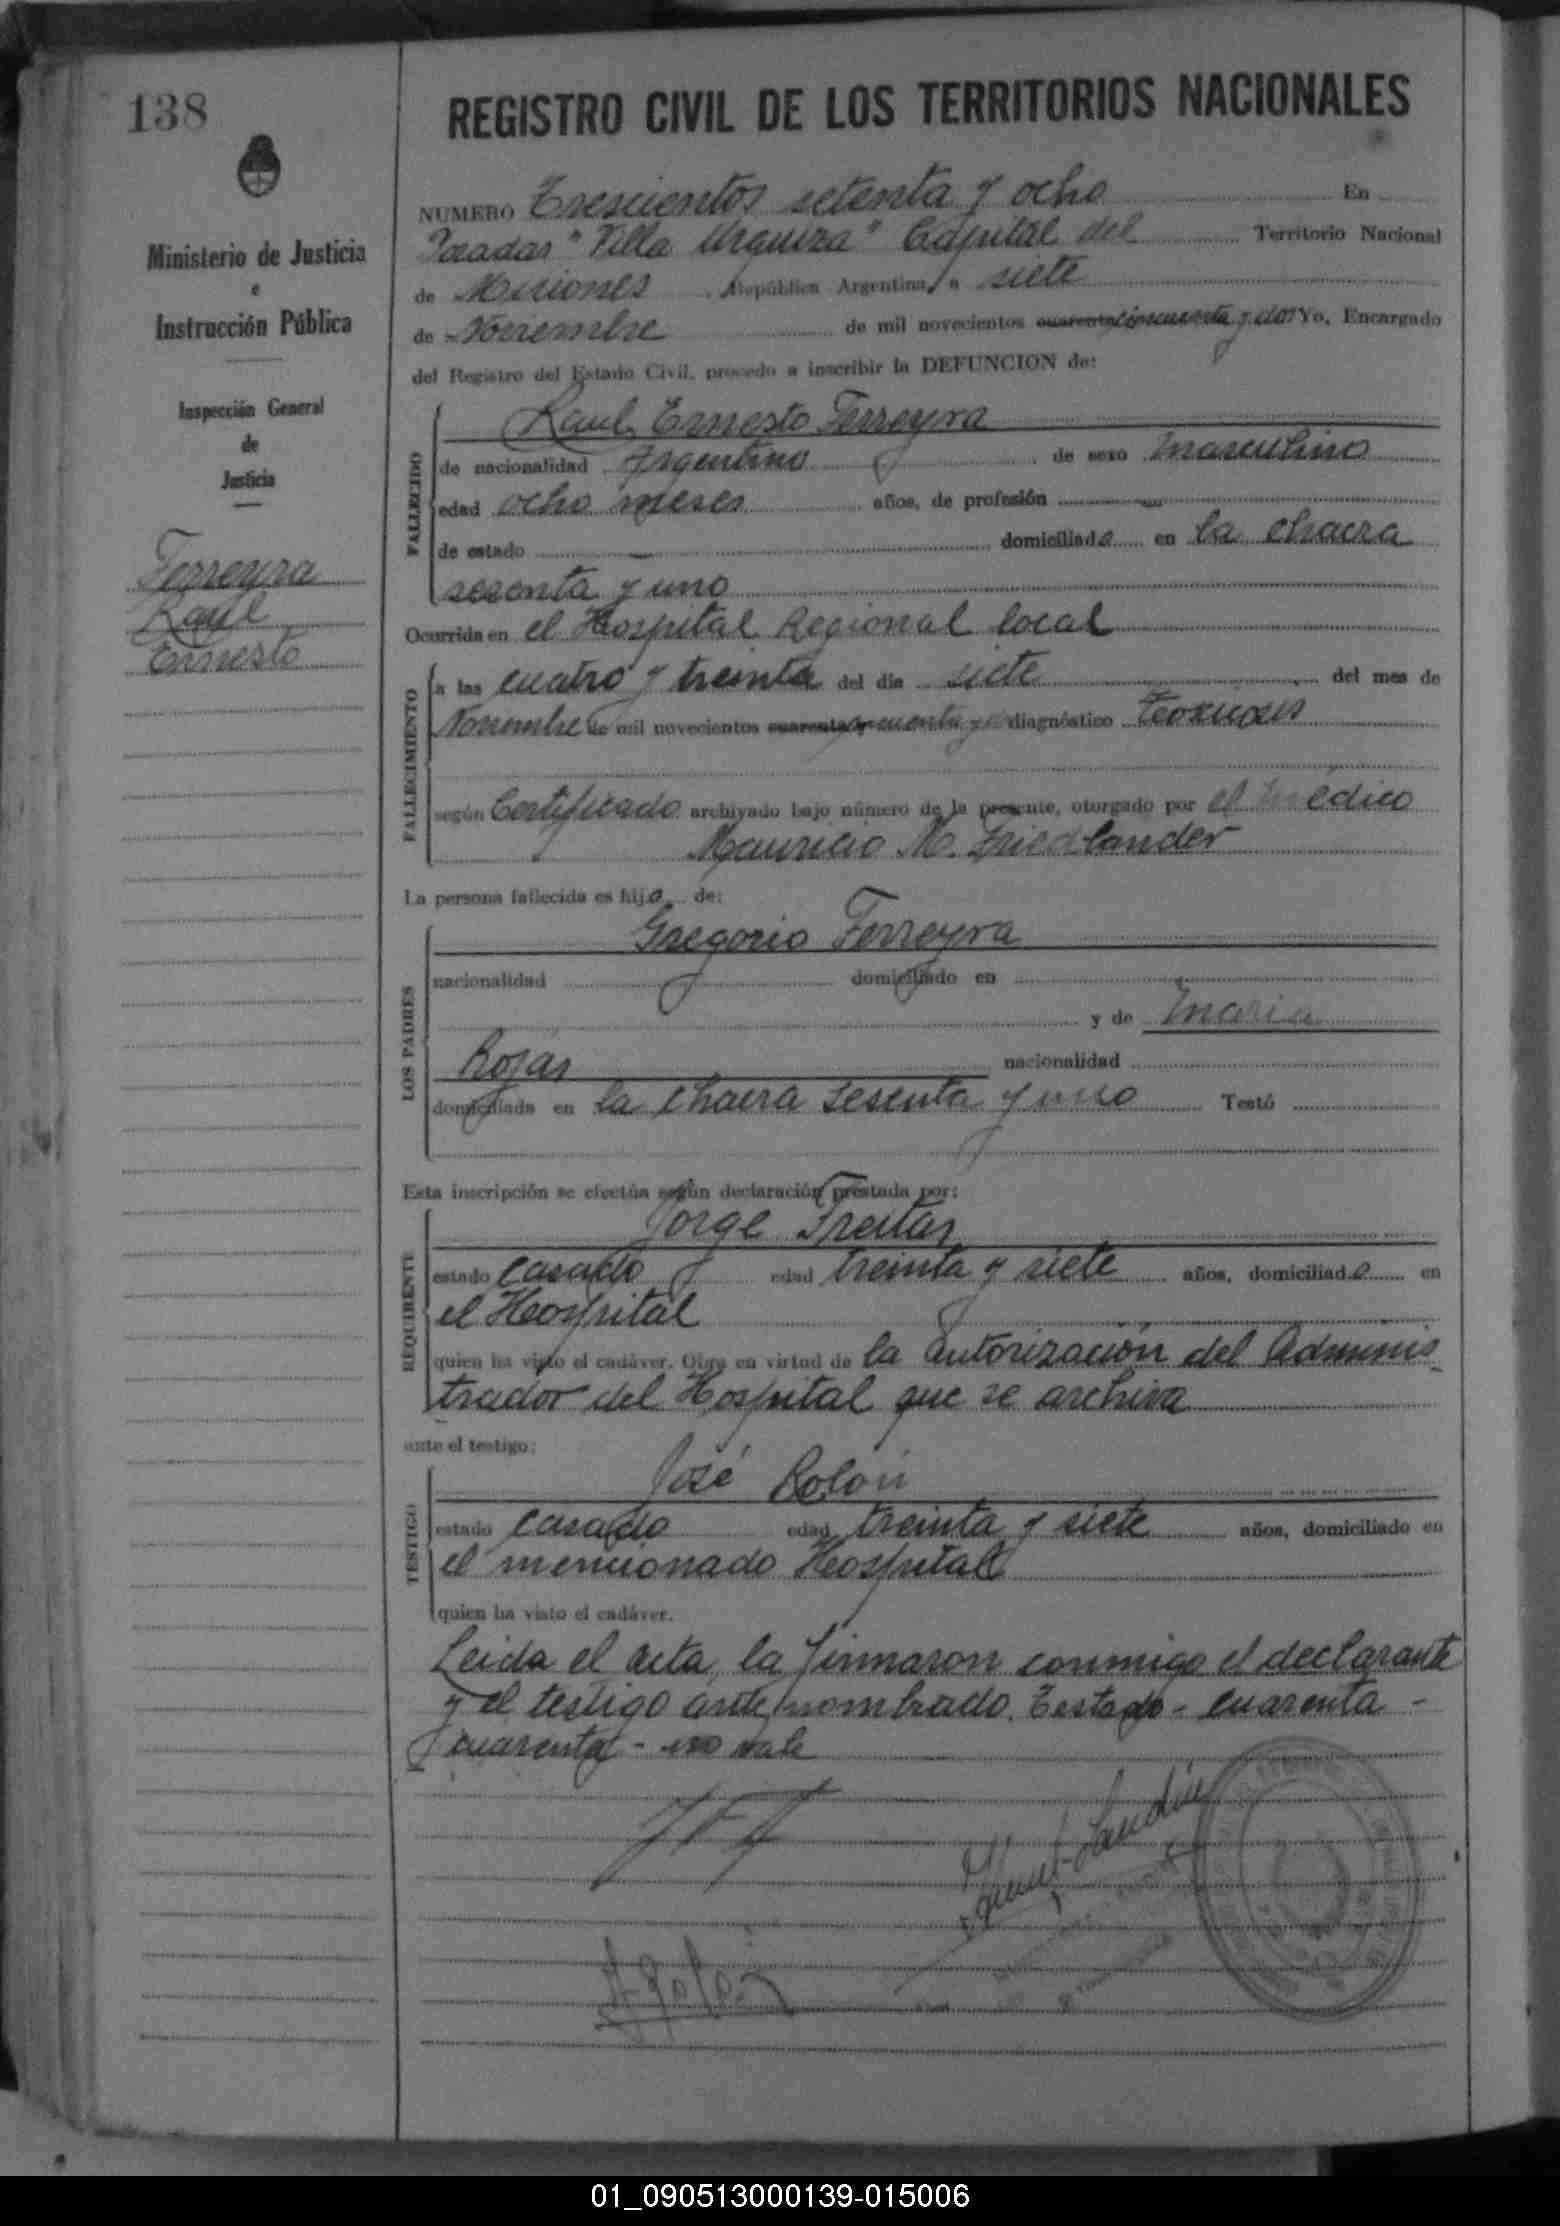 138
REGISTRO CIVIL DE LOS TERRITORIOS NACIONALES
Ministerio de Justicia
e
Instrucción Pública
Inspección General
de
Justicia
Ferreyra
Raul
Ernesto
NUMERO Trescientos setenta y ocho En
Posadas "Villa Urquiza" Capital del Territorio Nacional
de Misiones, República Argentina, a siete
de Noviembre de mil novecientos cuarenta cincuenta y dos Yo, Encargado
del Registro del Estado Civil, procedo a inscribir la DEFUNCION de:
FALLECIDO
Raul Ernesto Ferreyra
de nacionalidad Argentino de sexo masculino
edad ocho meses años, de profesión —
de estado — domiciliado en la chacra
sesenta y uno
Ocurrida en el Hospital Regional local
FALLECIMIENTO
a las cuatro y treinta del día siete del mes de
Noviembre de mil novecientos cuarenta cincuenta y diagnóstico Toxicosis
según Certificado archivado bajo número de la presente, otorgado por el médico
Mauricio M. Friedlander
La persona fallecida es hijo de:
LOS PADRES
Gregorio Ferreyra
nacionalidad domiciliado en
y de Maria
Rojas nacionalidad
domiciliada en la chacra sesenta y uno Testó
Esta inscripción se efectúa según declaración prestada por:
REQUIRENTE
Jorge Freitas
estado casado edad treinta y siete años, domiciliado en
el Hospital
quien ha visto el cadáver. Obra en virtud de la autorización del Adminis-
trador del Hospital que se archiva
ante el testigo:
TESTIGO
José Rolón
estado casado edad treinta y siete años, domiciliado en
el mencionado Hospital
quien ha visto el cadáver.
Leida el acta, la firmaron conmigo el declarante
y el testigo ante nombrado. Testado - cuarenta -
cuarenta - no vale
01_090513000139-015006